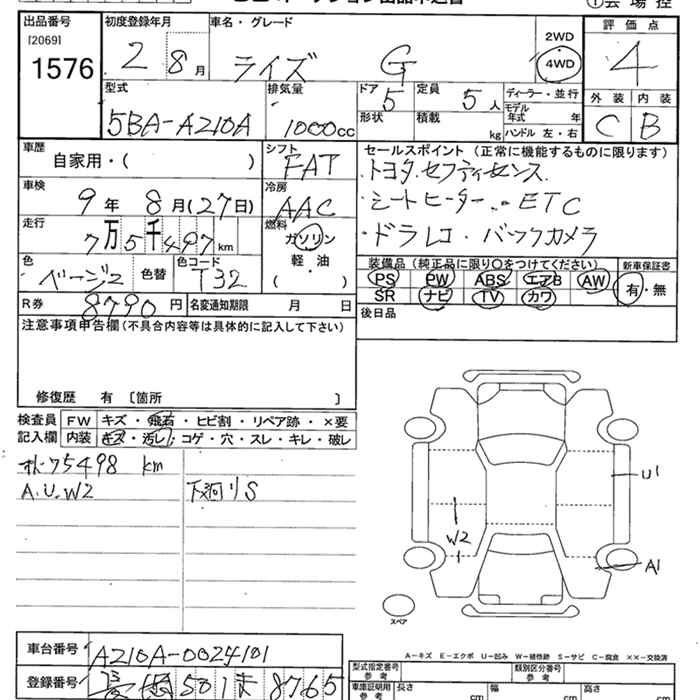 出品番号
[2069]
1576
初度登録年月
2 8月
車名・グレード
ライズ G
2WD
4WD
評価点
4
外装 内装
C B
型式
5BA-A210A
排気量
1000cc
ドア
5
定員
5人
形状
積載
kg
ディーラー・並行
モデル年式 年
ハンドル 左・右
車歴
自家用・( )
シフト
FAT
車検
9年 8月(27日)
冷房
AAC
走行
7万5千497km
燃料
ガソリン
軽・油
( )
色
ベージュ
色替
色コード
T32
R券
8790円
名変通知期限 月 日
セールスポイント (正常に機能するものに限ります)
・トヨタセフティセンス
・シートヒーター ・ETC
・ドラレコ・バックカメラ
装備品 (純正品に限り○をつけてください)
新車保証書
PS PW ABS エアB AW
SR ナビ TV カワ
有・無
後日品
注意事項申告欄(不具合内容等は具体的に記入して下さい)
修復歴 有 [箇所 ]
検査員記入欄
FW キズ・飛石・ヒビ割・リペア跡・×要
内装 キズ・汚レ・コゲ・穴・スレ・キレ・破レ
75498 km
A.U.W2
下廻りS
U1
W2
A1
スペア
A-キズ E-エクボ U-凹み W-補修跡 S-サビ C-腐食 ××-交換済
車台番号
A210A-0024101
登録番号
501 ま 8765
型式指定番号
参考
類別区分番号
参考
車庫証明用
参考
長さ cm
幅 cm
高さ cm